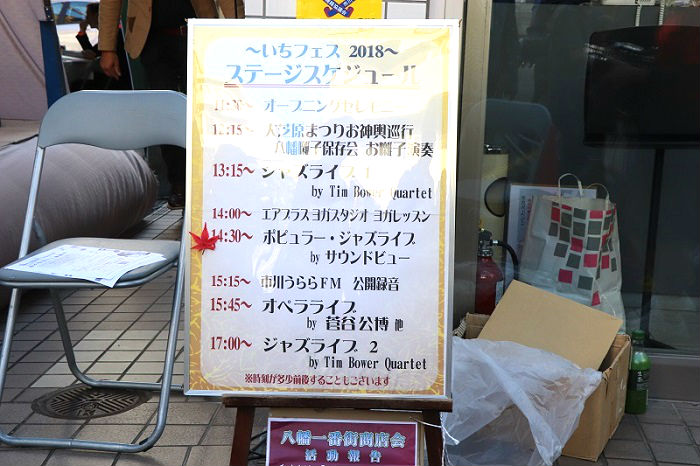 ～いちフェス 2018～
ステージスケジュール
オープニングセレモニー
12:15～ 大芝原まつりお神輿巡行
八幡囃子保存会 お囃子演奏
13:15～ ジャズライブ 1
by Tim Bower Quartet
14:00～ エアプラスヨガスタジオ ヨガレッスン
14:30～ ポピュラー・ジャズライブ
by サウンドビュー
15:15～ 市川うららFM 公開録音
15:45～ オペラライブ
by 菅谷公博 他
17:00～ ジャズライブ 2
by Tim Bower Quartet
※時刻が多少前後することもございます
八幡一番街商店会
活動報告